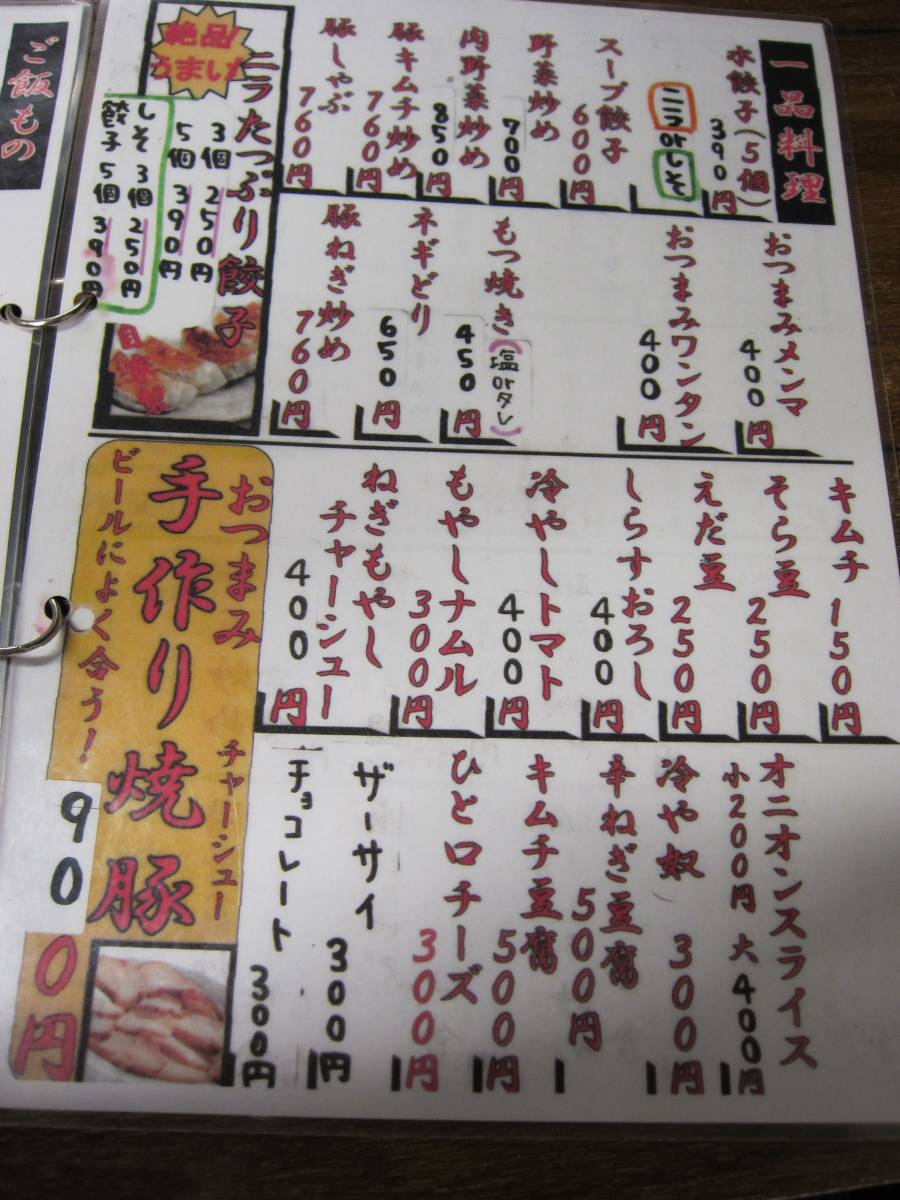 ご飯もの
一品料理
水餃子(5個)
390円
ニラorしそ
スープ餃子
600円
野菜炒め
700円
肉野菜炒め
850円
豚キムチ炒め
760円
豚しゃぶ
760円
絶品!
うまい!
ニラたっぷり餃子
3個 250円
5個 390円
しそ餃子
3個 250円
5個 390円
おつまみメンマ
400円
おつまみワンタン
400円
もつ焼き(塩orタレ)
450円
ネギどり
650円
豚ねぎ炒め
760円
キムチ
150円
そら豆
250円
えだ豆
250円
しらすおろし
400円
冷やしトマト
400円
もやしナムル
300円
ねぎもやし
チャーシュー
400円
おつまみ
手作り焼豚
チャーシュー
ビールによく合う!
900円
オニオンスライス
小200円 大400円
冷や奴
300円
辛ねぎ豆腐
500円
キムチ豆腐
500円
ひと口チーズ
300円
ザーサイ
300円
チョコレート
300円